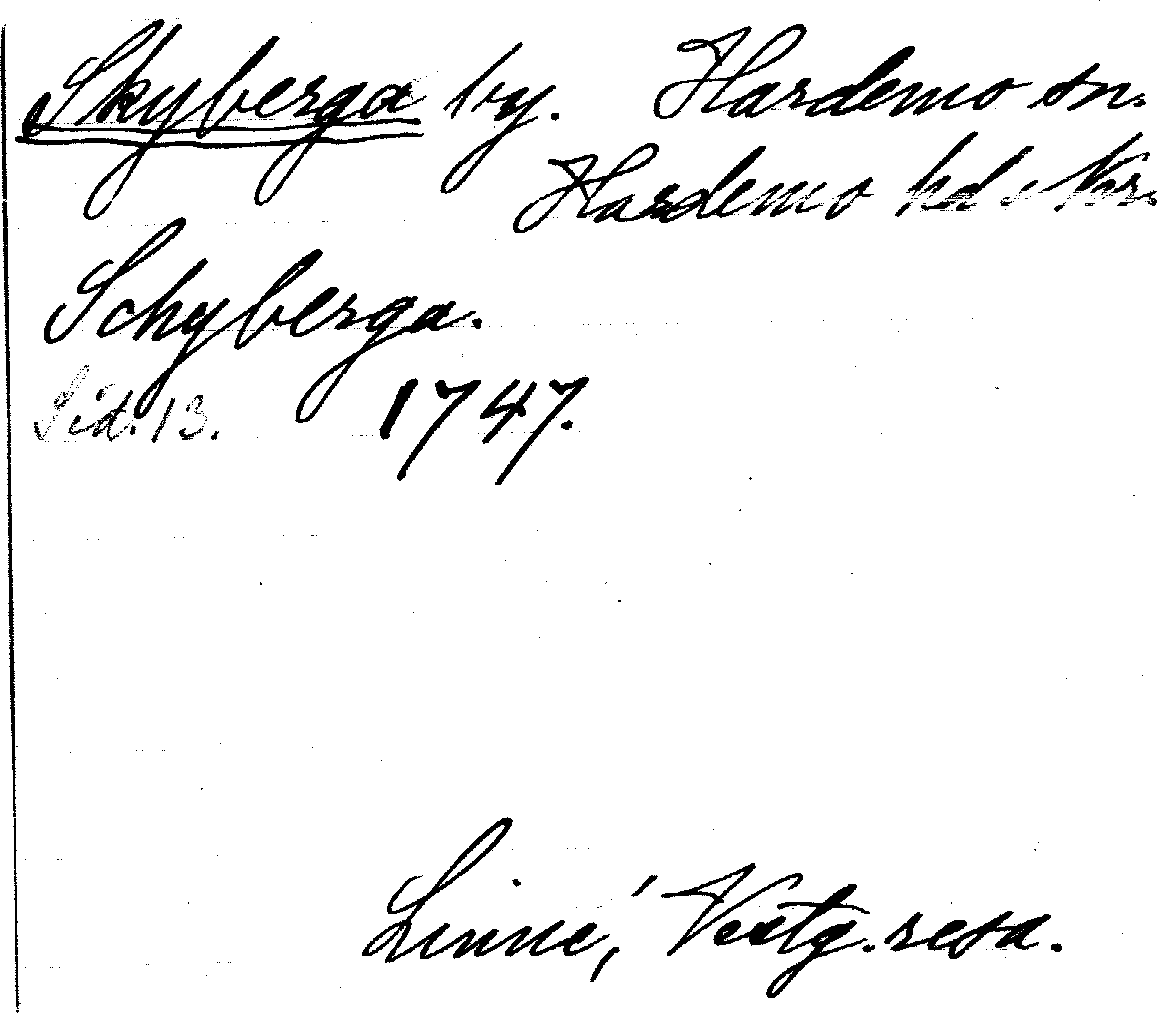 Skyberga by. Hardemo sn.
Hardemo hd, När.
Schyberga.
Sid. 13. 1747.
Linné, Vestg. resa.